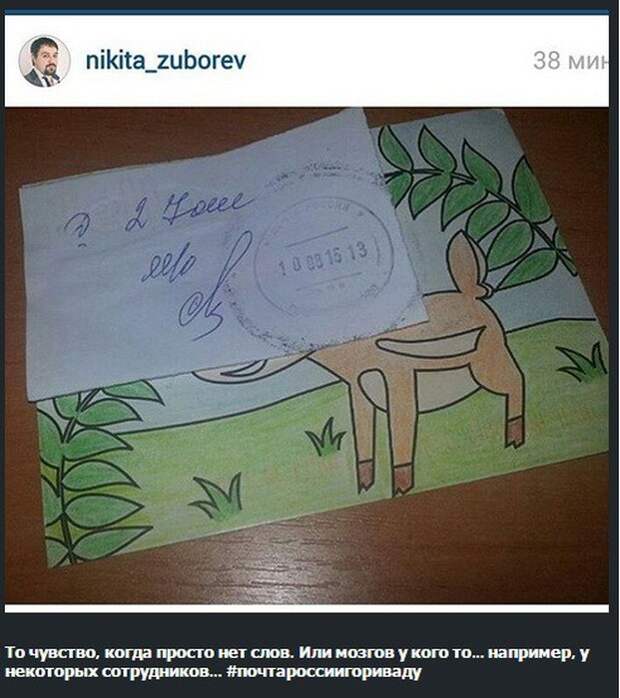 nikita_zuborev
38 мин
2
10 08 15 13
То чувство, когда просто нет слов. Или мозгов у кого то... например, у
некоторых сотрудников... #почтароссиигориваду